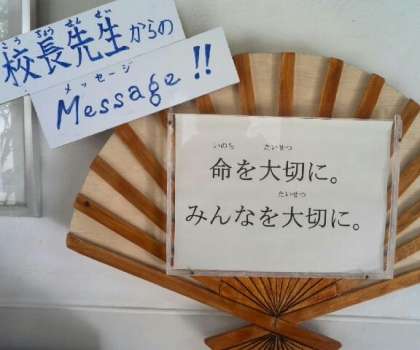 こうちょうせんせい
校長先生からの
メッセージ
Message!!
いのち たいせつ
命を大切に。
たいせつ
みんなを大切に。